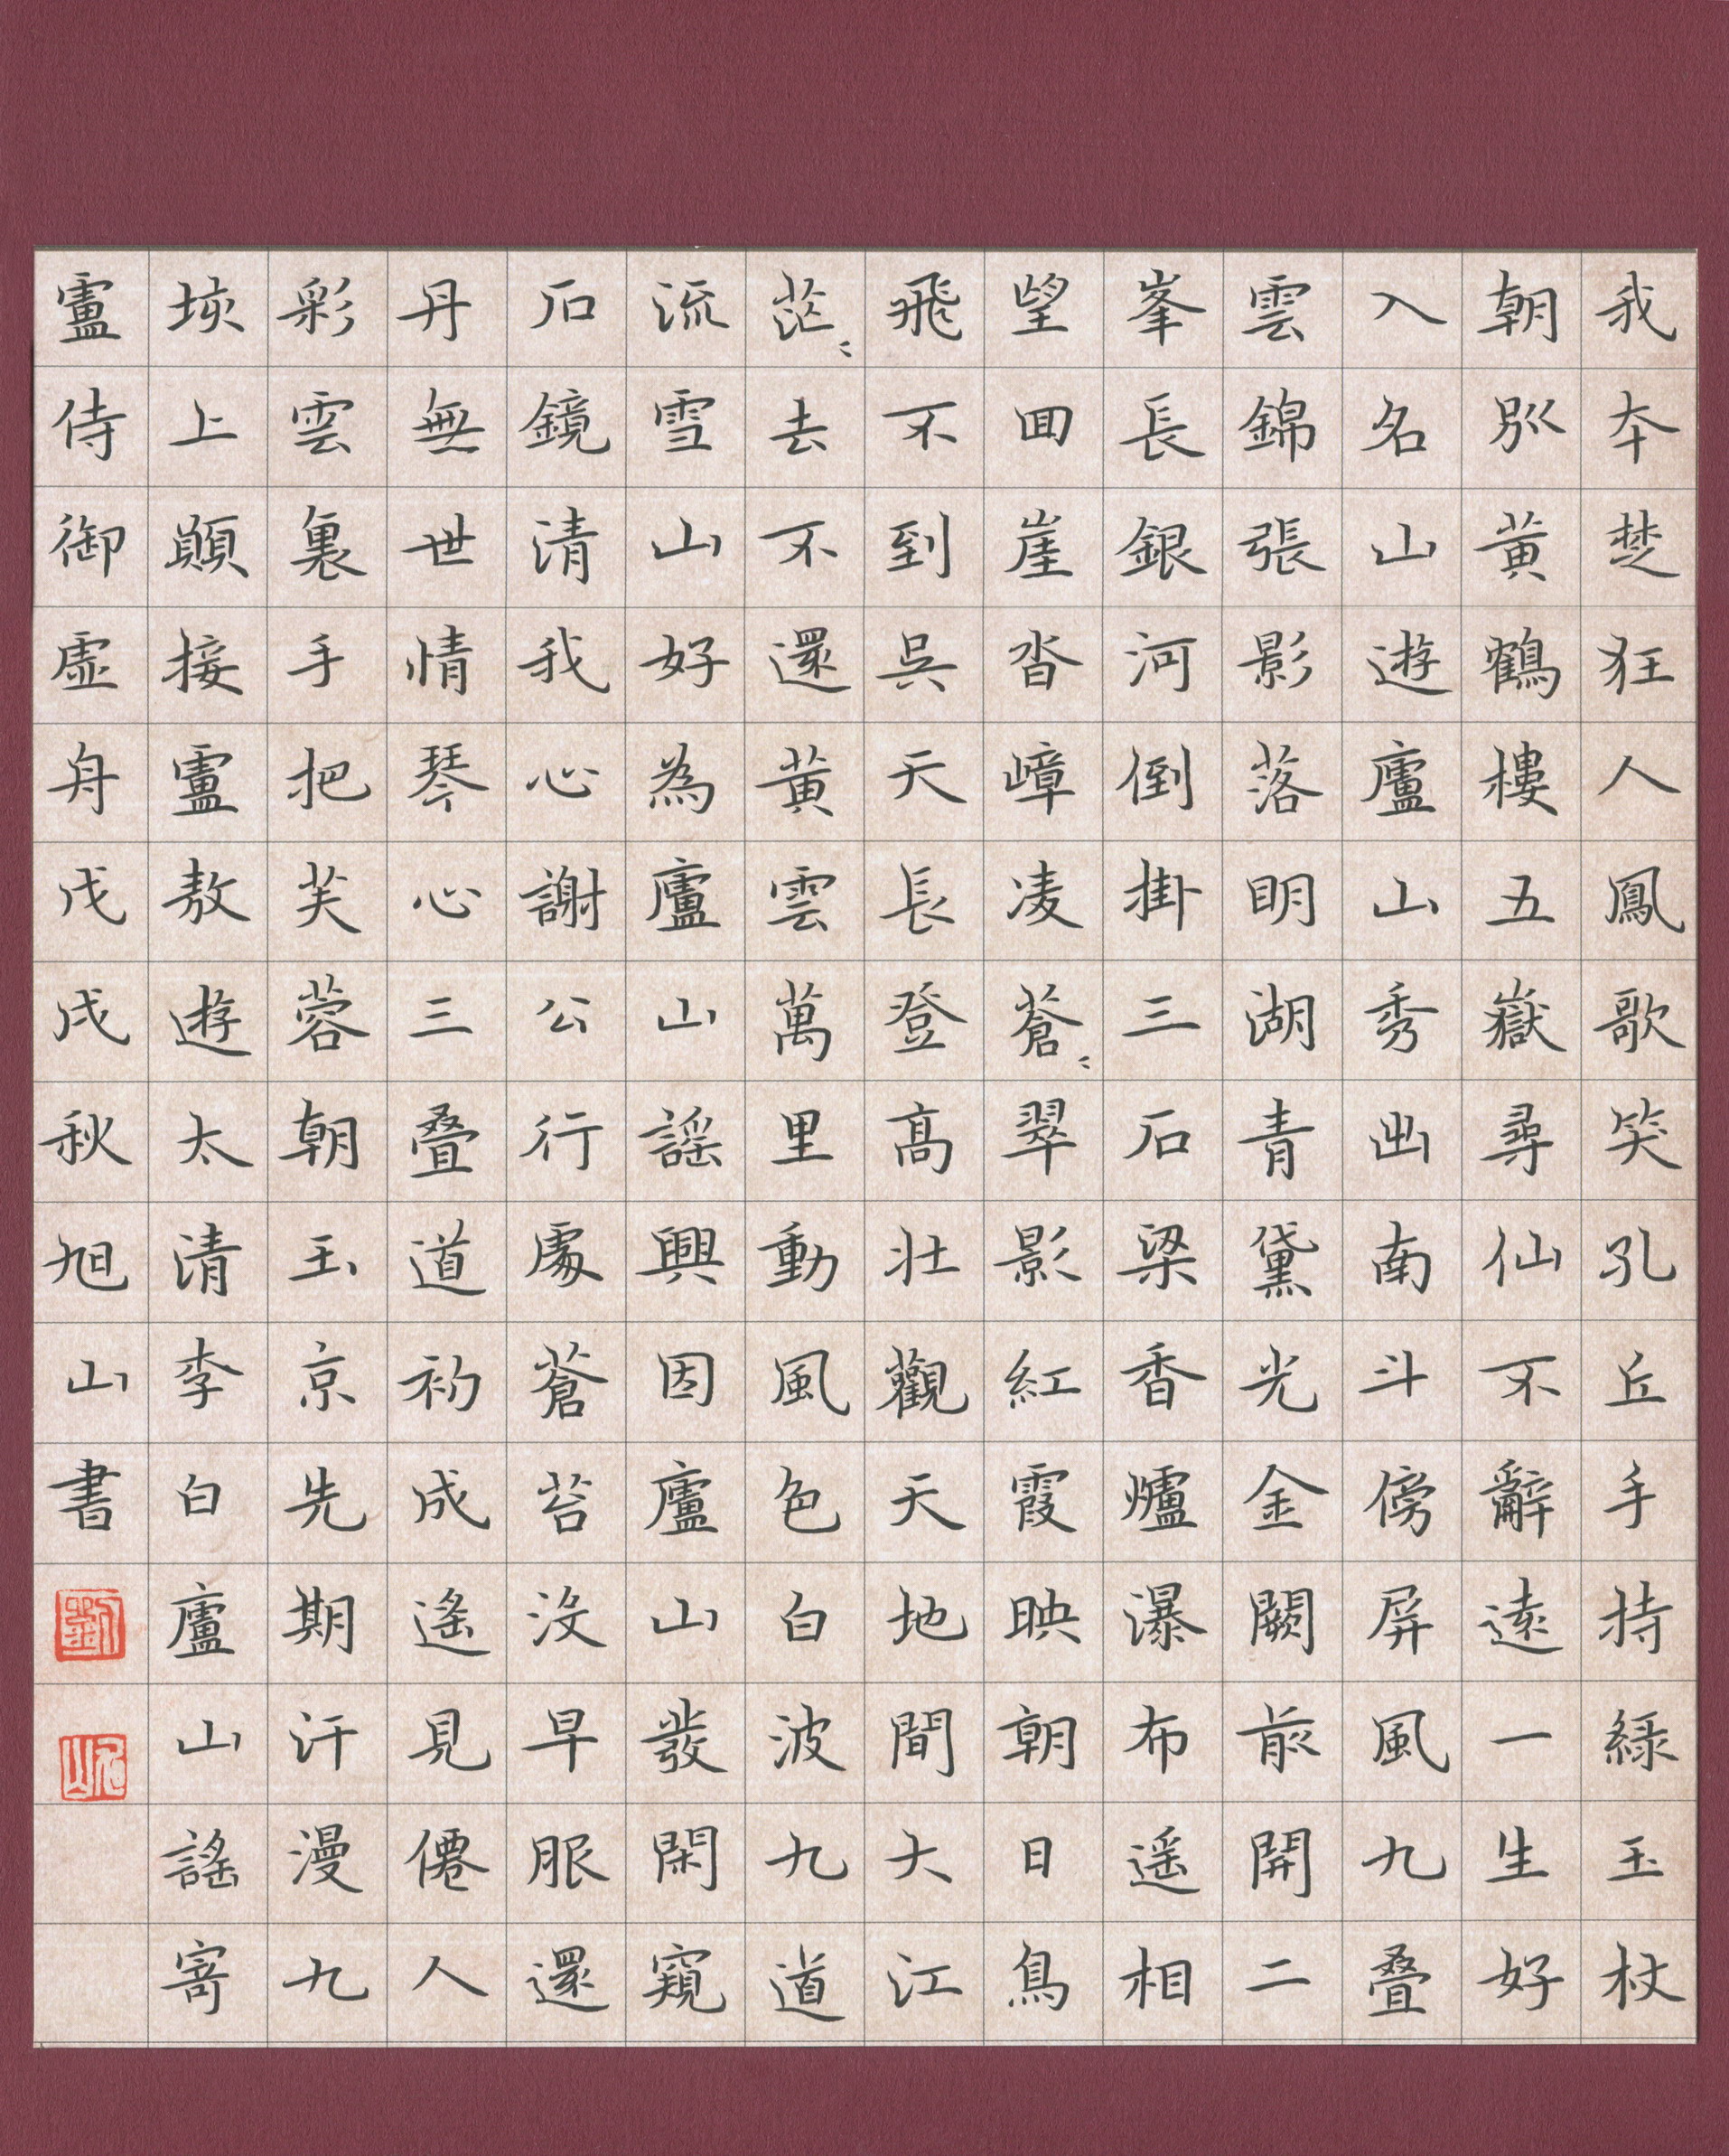 我本楚狂人鳳歌笑孔丘手持綠玉杖
朝別黃鶴樓五嶽尋仙不辭遠一生好
入名山遊廬山秀出南斗傍屏風九疊
雲錦張影落明湖青黛光金闕前開二
峯長銀河倒掛三石梁香爐瀑布遥相
望回崖沓嶂凌蒼〻翠影紅霞映朝日鳥
飛不到吳天長登高壯觀天地間大江
茫〻去不還黃雲萬里動風色白波九道
流雪山好為廬山謠興因廬山發閑窺
石鏡清我心謝公行處蒼苔沒早服還
丹無世情琴心三疊道初成遙見僊人
彩雲裏手把芙蓉朝玉京先期汗漫九
垓上願接盧敖遊太清李白廬山謠寄
盧侍御虛舟戊戌秋旭山書